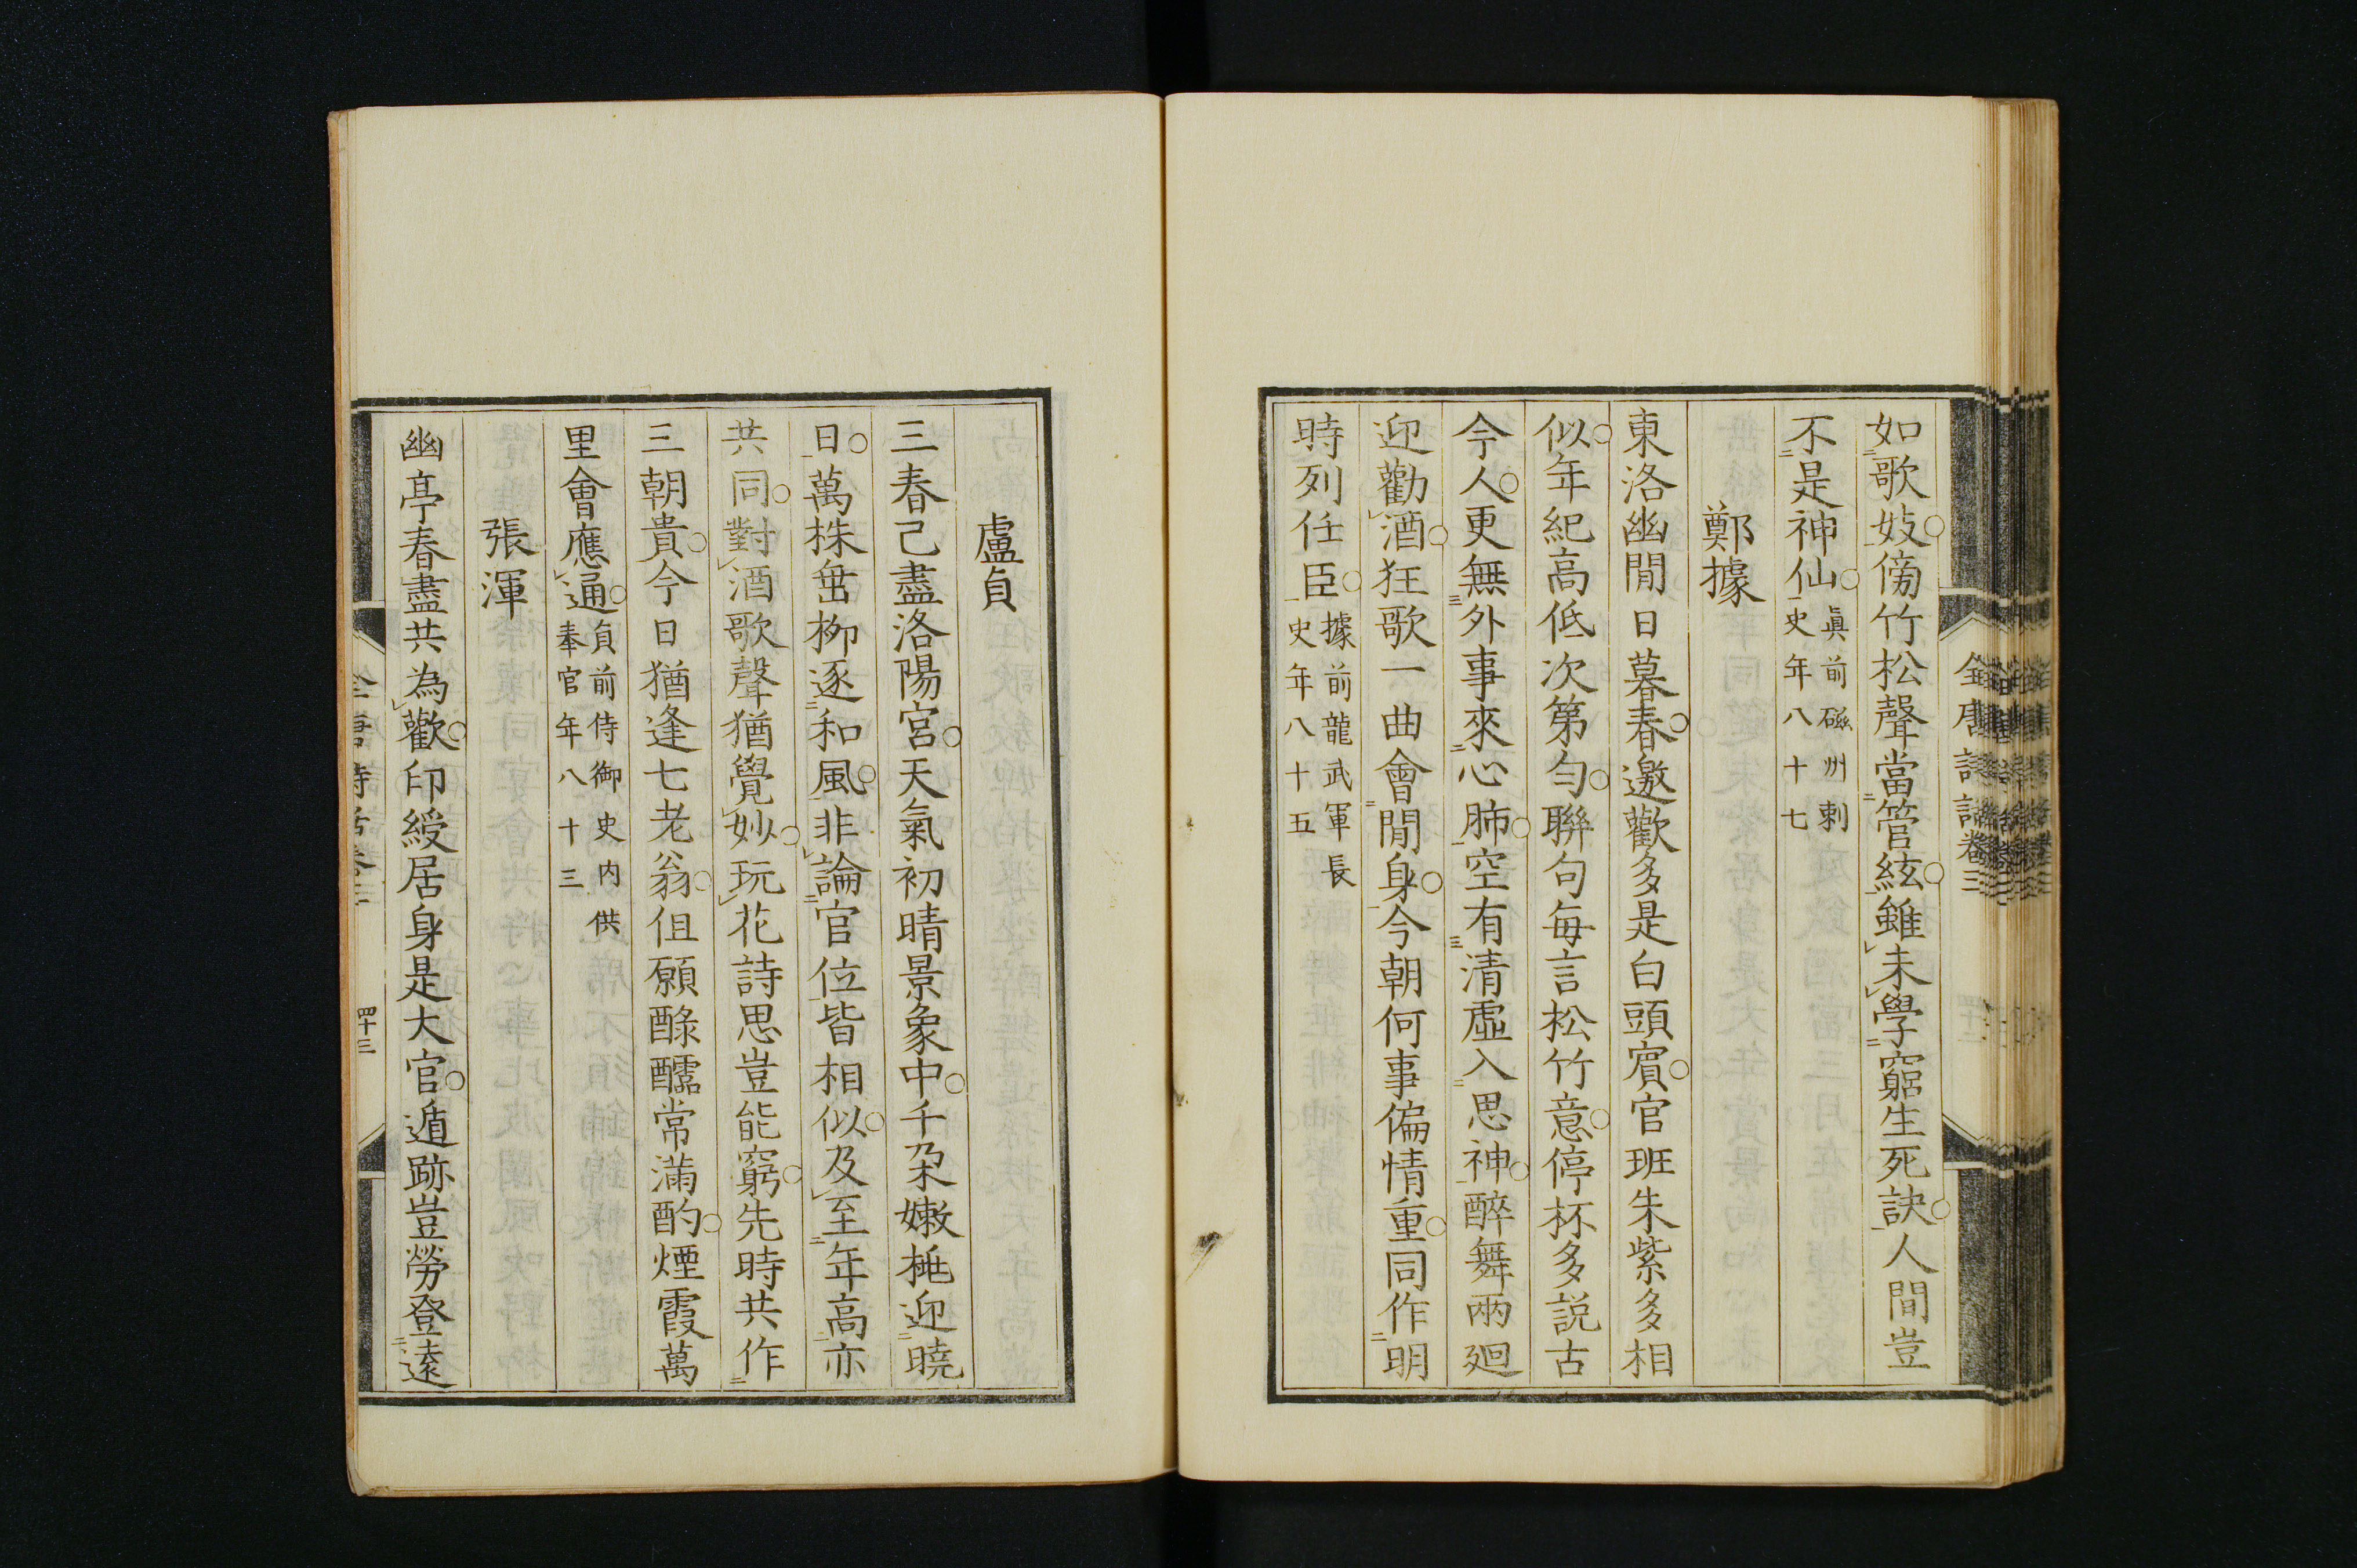 如歌妓傍竹松聲當管絃雖未學窮生死訣人間豈
不是神仙眞前磁州刺
史年八十七
鄭據
東洛幽閒日暮春邀歡多是白頭賓官班朱紫多相
似年紀高低次第勻聯句每言松竹意停杯多説古
今人更無外事來心肺空有清虛入思神醉舞兩廻
迎勸酒狂歌一曲會閒身今朝何事偏情重同作明
時列任臣據前龍武軍長
史年八十五
盧貞
三春已盡洛陽宮天氣初晴景象中千朶嫩桃迎曉
日萬株垂柳逐和風非論官位皆相似及至年高亦
共同對酒歌聲猶覺妙玩花詩思豈能窮先時共作
三朝貴今日猶逢七老翁但願醁醽常滿酌煙霞萬
里會應通貞前侍御史内供
奉官年八十三
張渾
幽亭春盡共為歡印綬居身是大官遁跡豈勞登遠
全唐詩話卷三
四十三